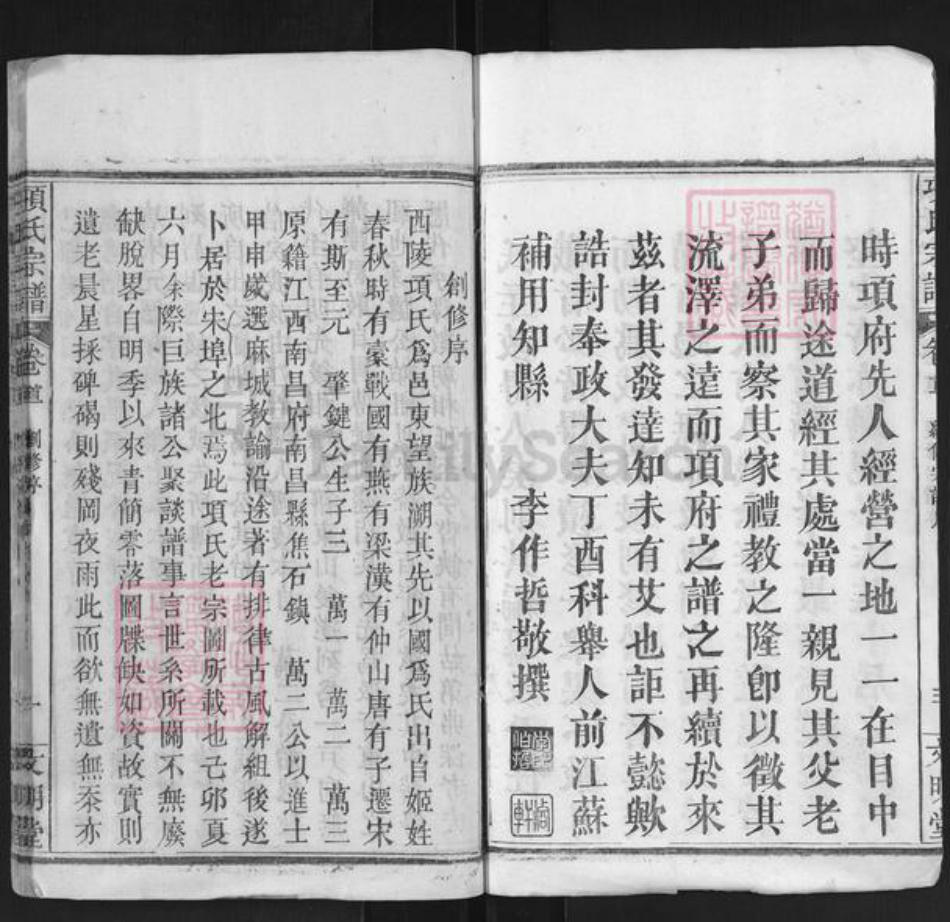 時項府先人經營之地一一在目中
而歸途道經其處當一親見其父老
子弟而察其家禮教之隆卽以徵其
流澤之遠而項府之譜之再續於來
茲者其發達知未有艾也詎不懿歟
誥封奉政大夫丁酉科舉人前江蘇
補用知縣 李作哲敬撰
創修序
西陵項氏爲邑東望族溯其先以國爲氏出自姬姓
春秋時有橐戰國有燕有梁漢有仲山唐有子遷宋
有斯至元 肇鍵公生子三 萬一 萬二 萬三
原籍江西南昌府南昌縣焦石鎮 萬二公以進士
甲申歲選麻城教諭沿途著有排律古風解組後遂
卜居於宋埠之北焉此項氏老宗圖所載也己卯夏
六月余際巨族諸公聚談譜事言世系所關不無廢
缺脫畧自明季以來青簡零落圖牒缺如資故實則
遺老晨星採碑碣則殘岡夜雨此而欲無遺無紊亦
項氏宗譜 卷首 創修序 一 文明堂
FamilySearch